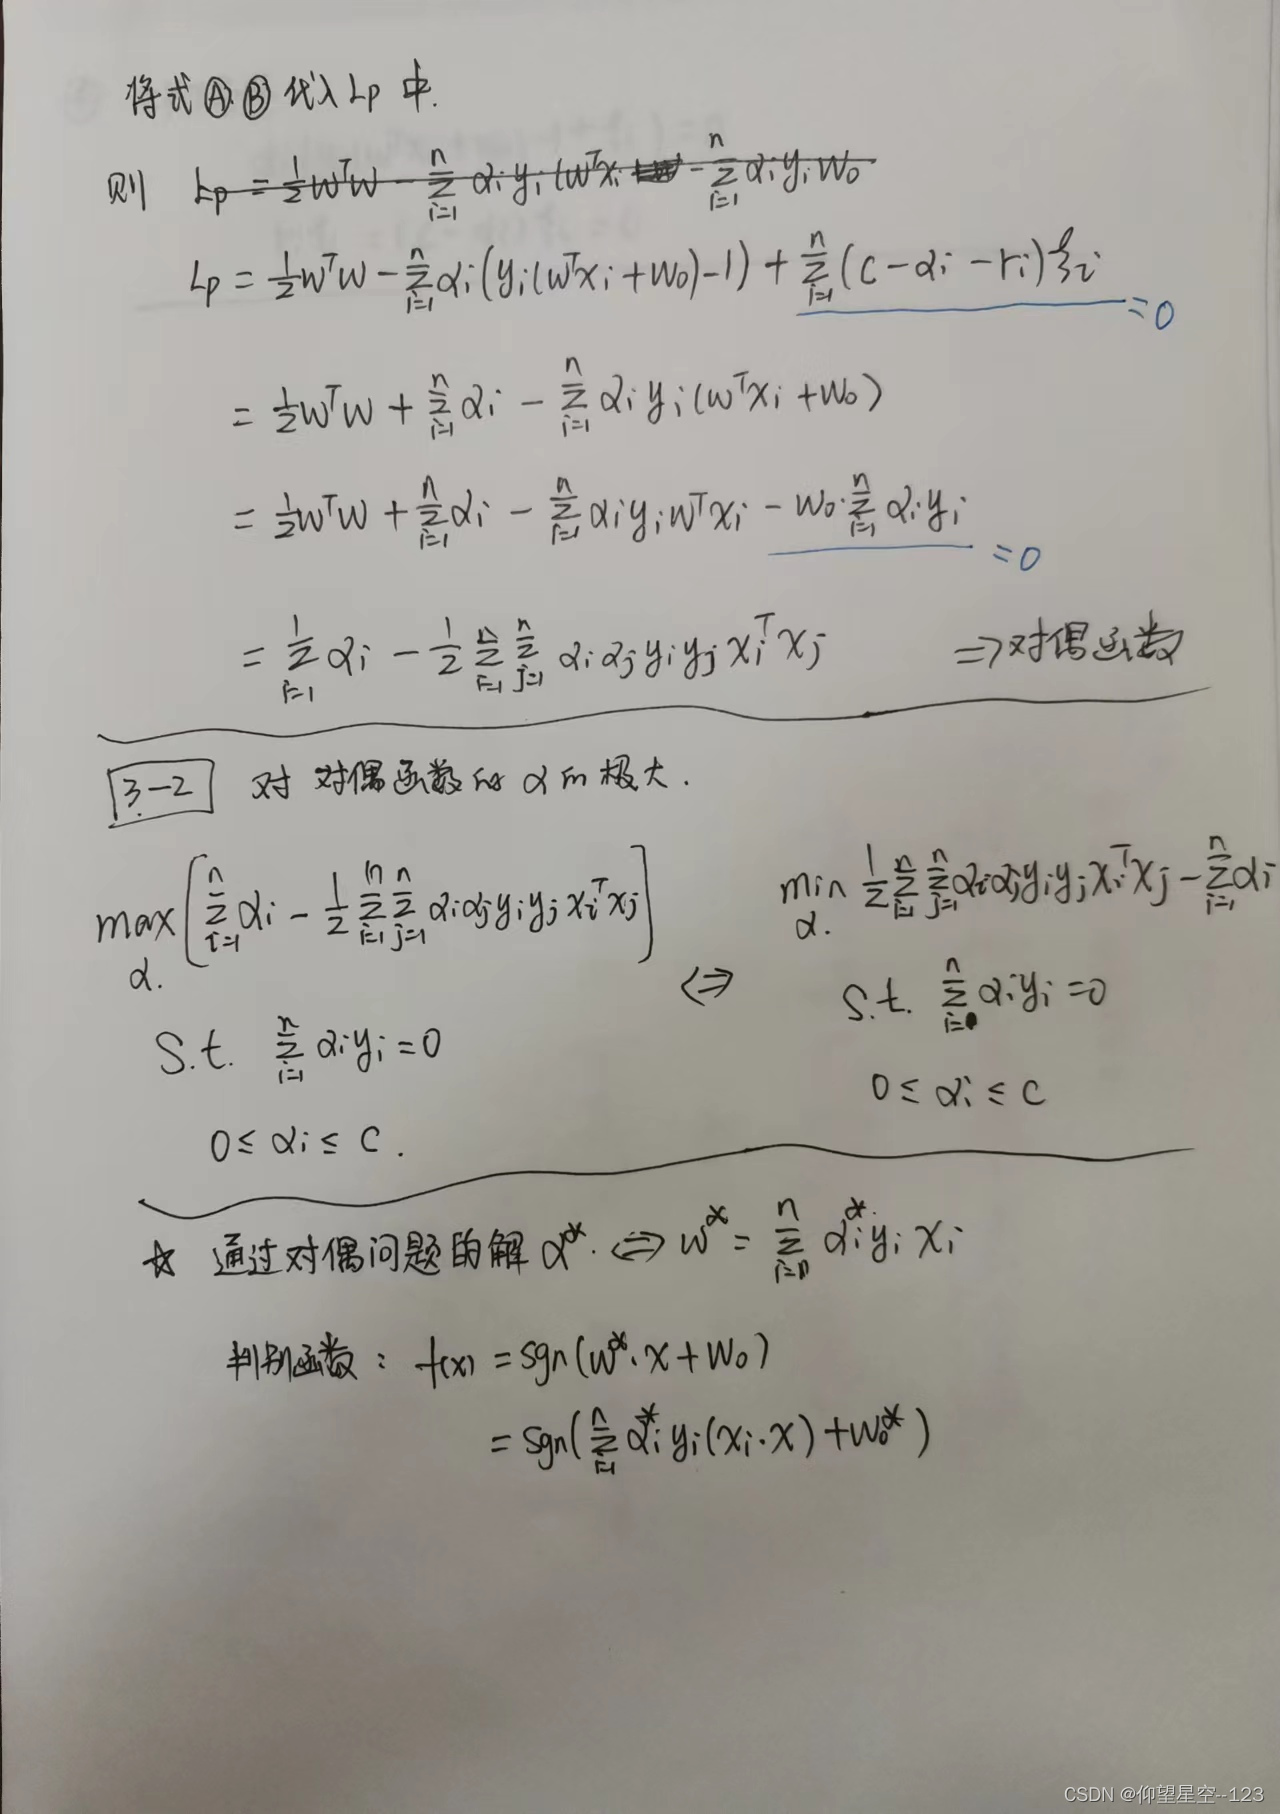 将式ⒶⒷ代入 Lp 中.
则 Lp = ½wᵀw − Σⁿᵢ₌₁ αᵢyᵢ(wᵀxᵢ − Σⁿᵢ₌₁ αᵢyᵢw₀
Lp = ½wᵀw − Σⁿᵢ₌₁ αᵢ(yᵢ(wᵀxᵢ + w₀) − 1) + Σⁿᵢ₌₁ (c − αᵢ − rᵢ)ξᵢ
= 0
= ½wᵀw + Σⁿᵢ₌₁ αᵢ − Σⁿᵢ₌₁ αᵢyᵢ(wᵀxᵢ + w₀)
= ½wᵀw + Σⁿᵢ₌₁ αᵢ − Σⁿᵢ₌₁ αᵢyᵢwᵀxᵢ − w₀·Σⁿᵢ₌₁ αᵢyᵢ
= 0
= Σ¹ᵢ₌₁ αᵢ − ½ Σⁿᵢ₌₁ Σⁿⱼ₌₁ αᵢαⱼyᵢyⱼxᵢᵀxⱼ ⇒ 对偶函数
3-2 对 对偶函数的 α 的极大.
max α. [Σⁿᵢ₌₁ αᵢ − ½ Σⁿᵢ₌₁ Σⁿⱼ₌₁ αᵢαⱼyᵢyⱼxᵢᵀxⱼ]
s.t. Σⁿᵢ₌₁ αᵢyᵢ = 0
0 ≤ αᵢ ≤ c.
⇔
min α. ½ Σⁿᵢ₌₁ Σⁿⱼ₌₁ αᵢαⱼyᵢyⱼxᵢᵀxⱼ − Σⁿᵢ₌₁ αᵢ
s.t. Σⁿ αᵢyᵢ = 0
0 ≤ αᵢ ≤ c
☆ 通过对偶问题的解 α*. ⇔ w* = Σⁿᵢ₌₁ αᵢ*yᵢxᵢ
判别函数: f(x) = sgn(w*·x + w₀)
= sgn(Σⁿᵢ₌₁ αᵢ*yᵢ(xᵢ·x) + w₀*)
CSDN @仰望星空--123